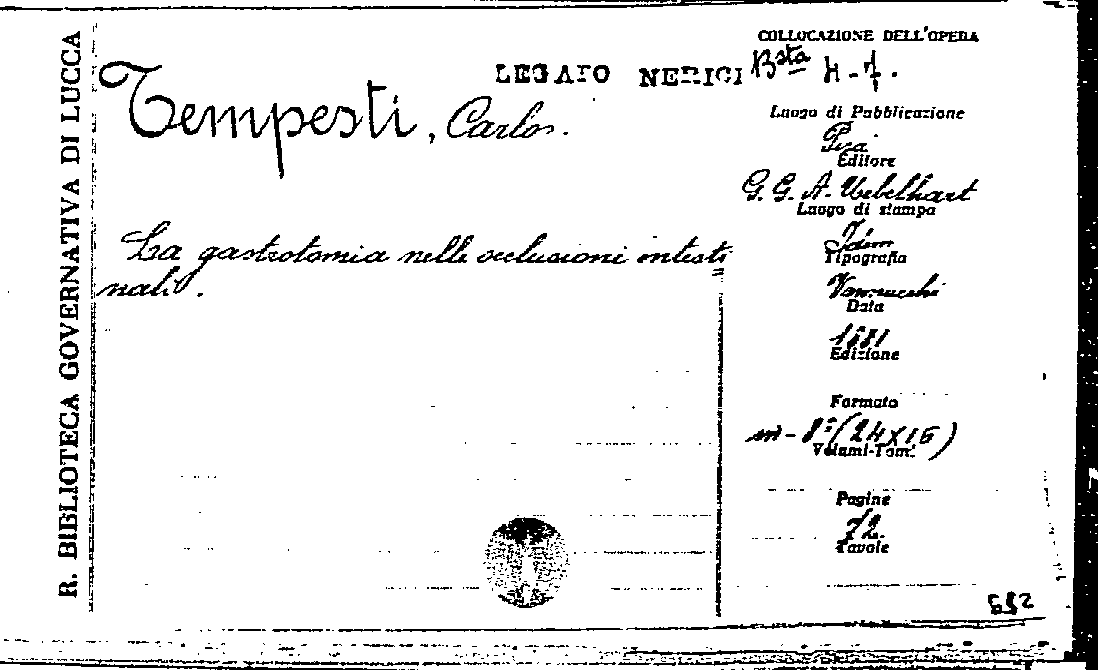 R. BIBLIOTECA GOVERNATIVA DI LUCCA
COLLOCAZIONE DELL'OPERA
LEGATO NERICI Bsta H-7.
Tempesti, Carlo.
Luogo di Pubblicazione
Pisa
Editore
G. G. A. Uebelhart
Luogo di stampa
Idem
Tipografia
La gastrotomia nelle occlusioni intesti
nali.
Vannucchi
Data
1881
Edizione
Formato
in-8° (24X16)
Volumi-Tomi
Pagine
72.
Tavole